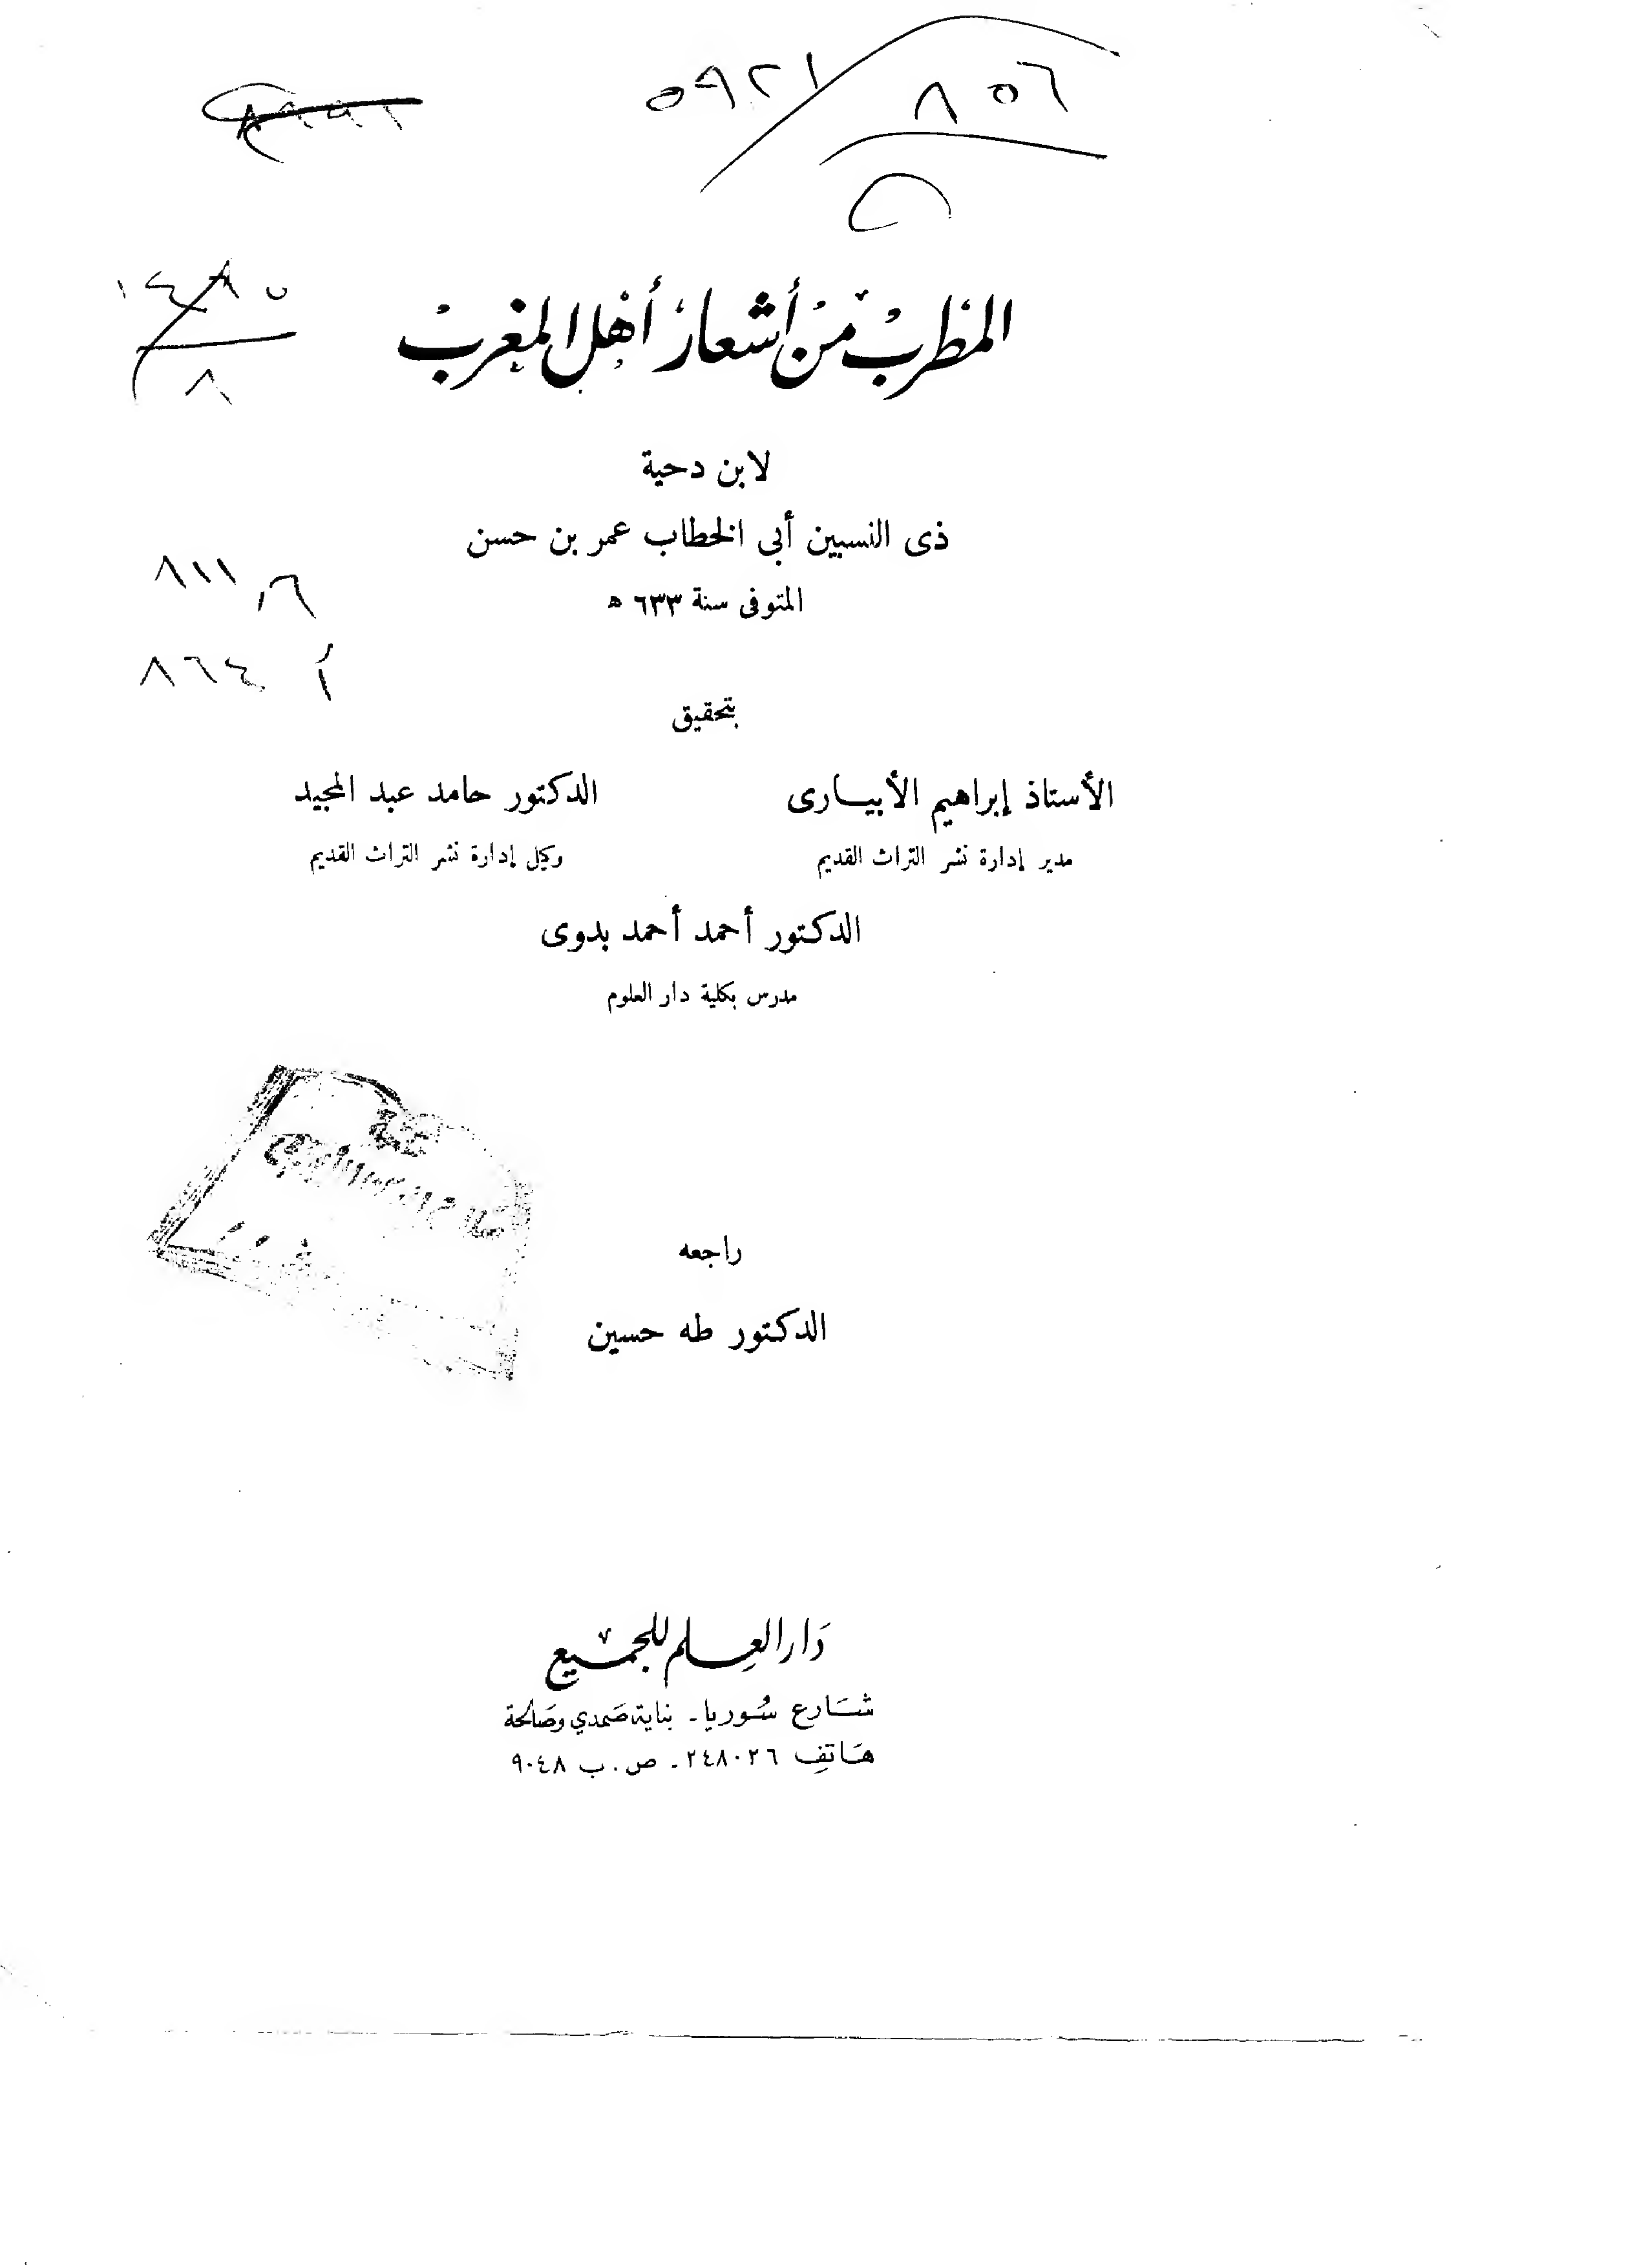 ٥٩٢١
٨٥٦
المطرب من أشعار أهل المغرب
لابن دحية
ذى النسبين أبى الخطاب عمر بن حسن
المتوفى سنة ٦٣٣ ه
٨١١,٦
٨٦٤ أ
بتحقيق
الأستاذ إبراهيم الأبيارى الدكتور حامد عبد المجيد
مدير إدارة نشر التراث القديم وكيل إدارة نشر التراث القديم
الدكتور أحمد أحمد بدوى
مدرس بكلية دار العلوم
راجعه
الدكتور طه حسين
دَار العِلم للجميع
شَارع سُوريا - بناية صَمدي وصَالحة
هَاتفِ ٢٤٨٠٢٦ - ص.ب ٩٠٤٨